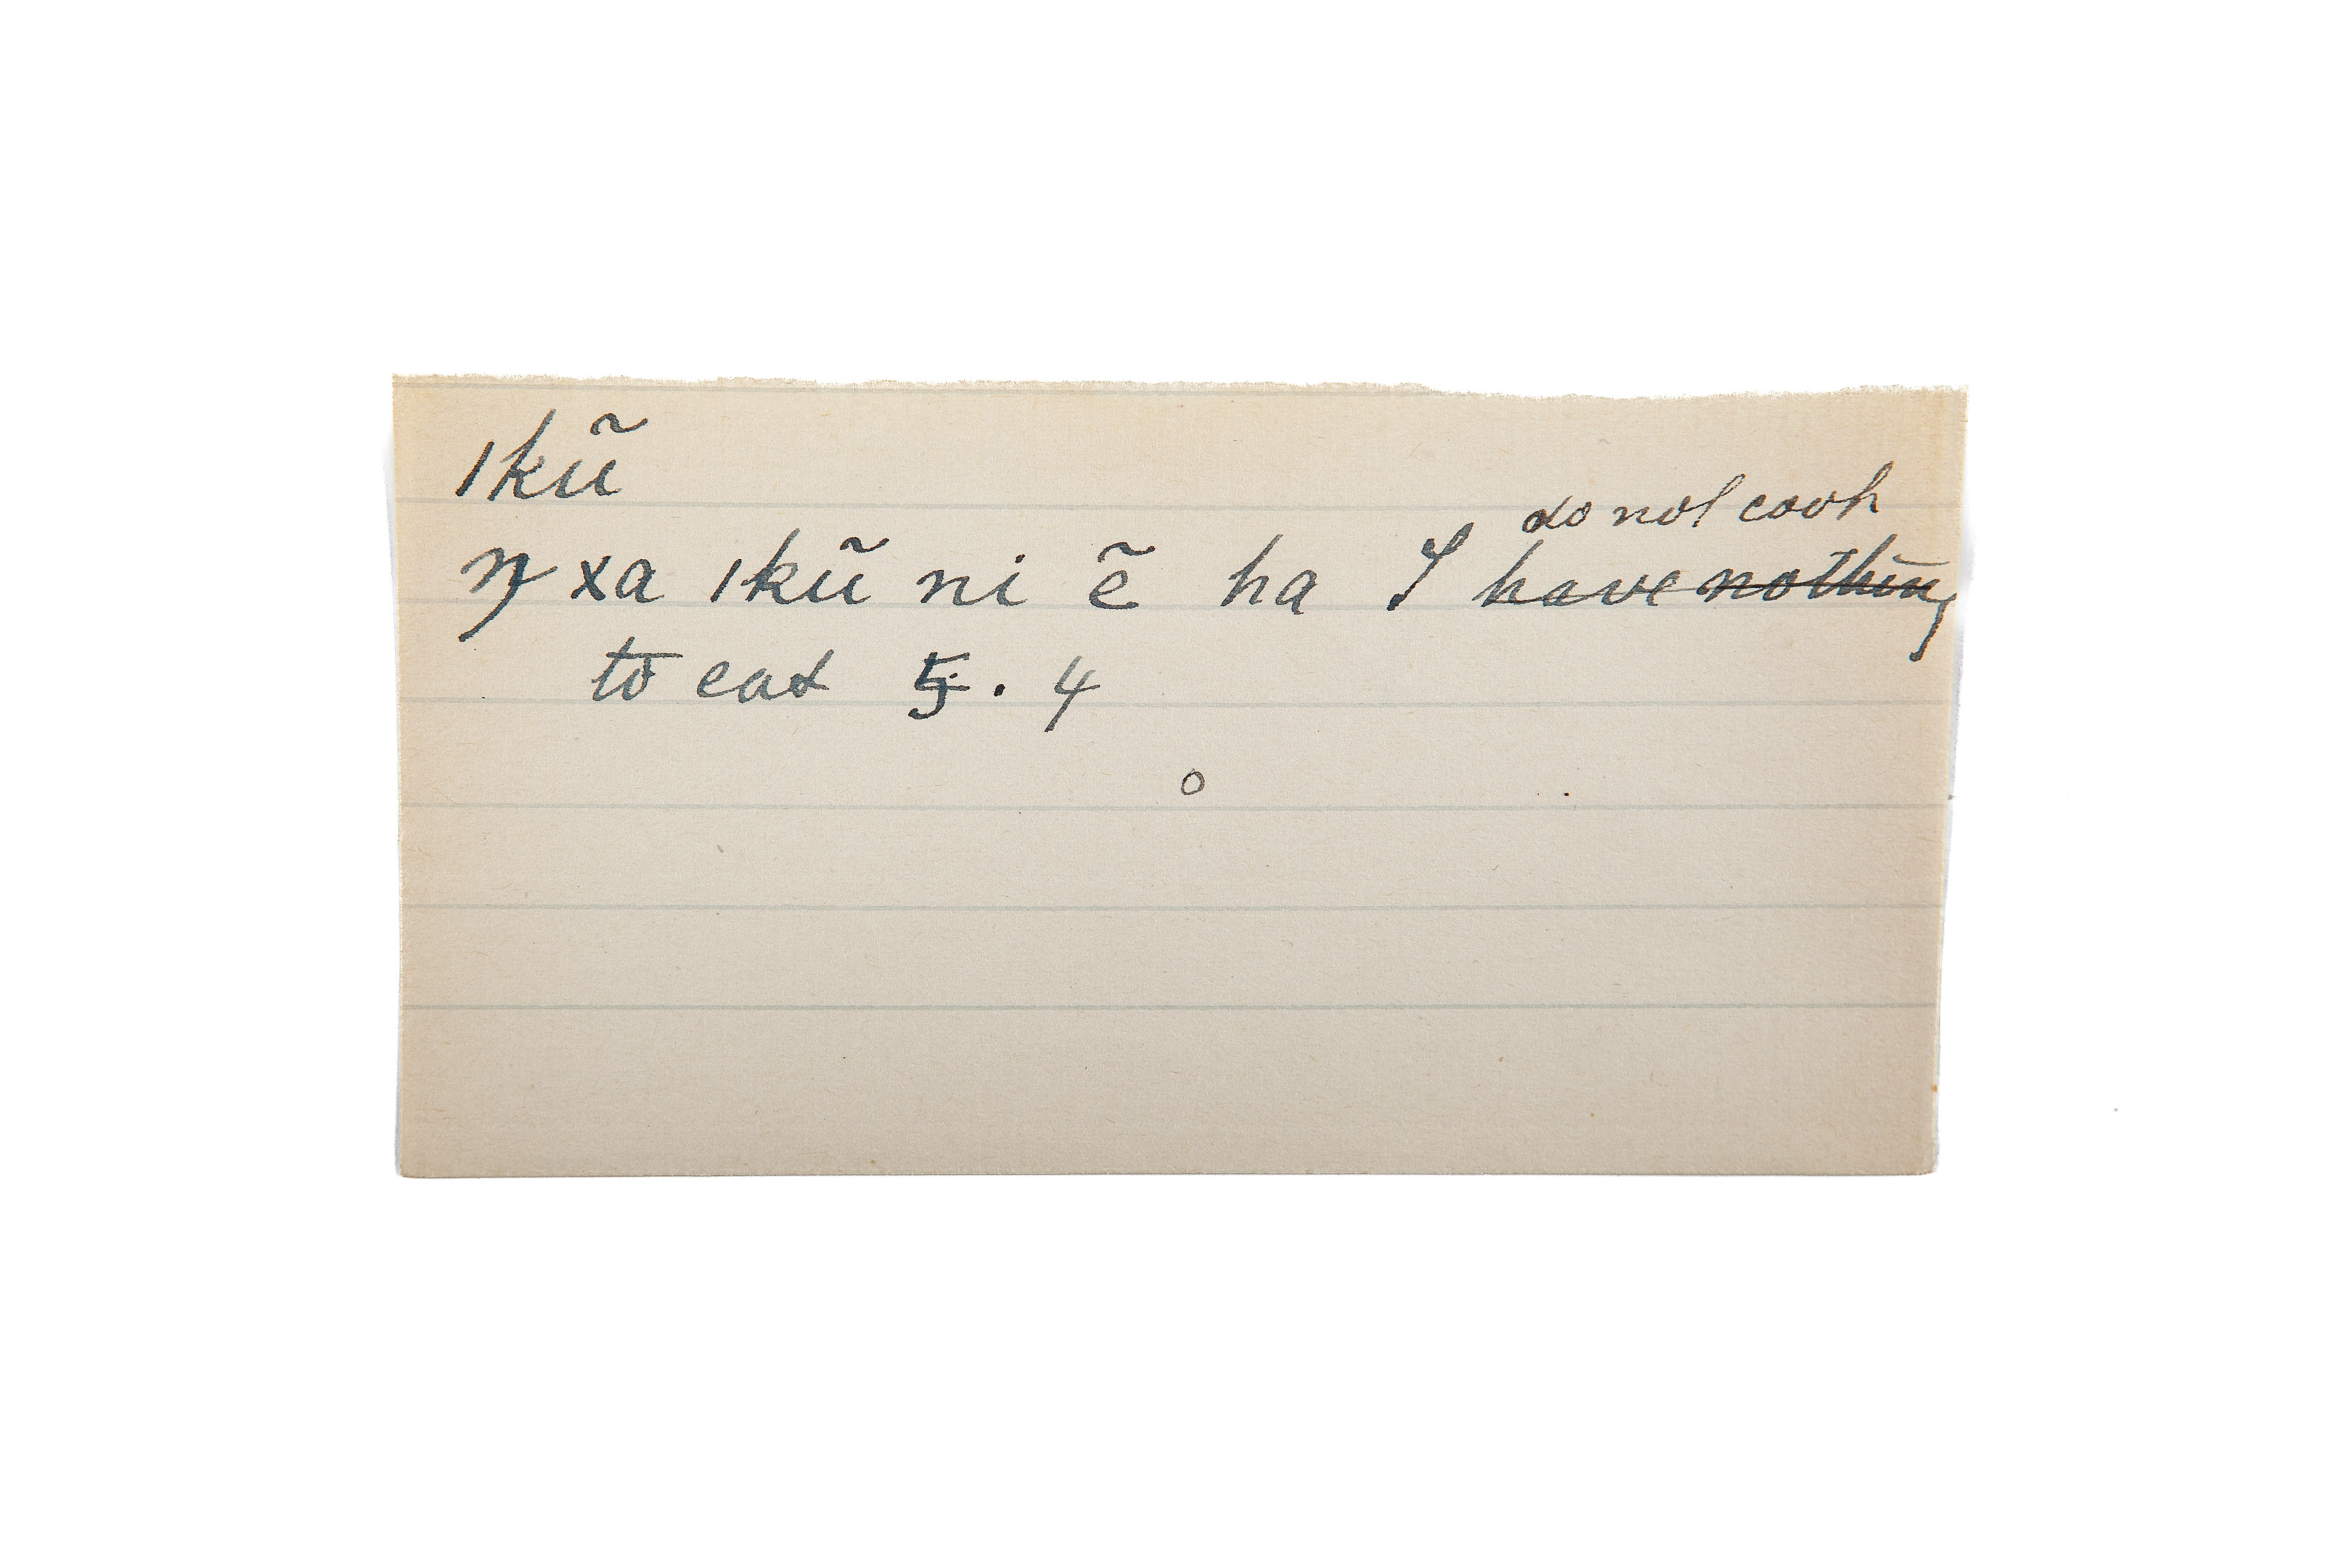 ikũ
do not cook
ŋ xa ikũ ni ẽ ha I have nothing
to eat 5. 4
o